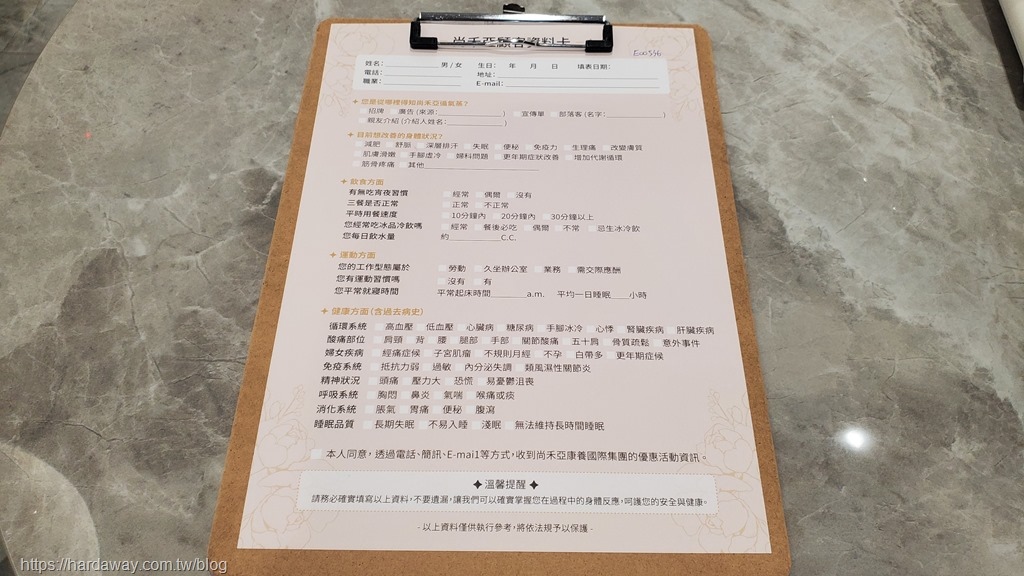 尚禾亞顧客資料卡
E00336
姓名：＿＿＿＿ 男/女 生日： 年 月 日 填表日期：
電話：＿＿＿＿ 地址：＿＿＿＿
職業：＿＿＿＿ E-mail：＿＿＿＿
✦ 您是從哪裡得知尚禾亞循氣蒸？
招牌 廣告(來源：＿＿＿＿) 宣傳單 部落客(名字：＿＿＿＿)
親友介紹(介紹人姓名：＿＿＿＿)
✦ 目前想改善的身體狀況？
減肥 舒脈 深層排汗 失眠 便秘 免疫力 生理痛 改變膚質
肌膚滑嫩 手腳虛冷 婦科問題 更年期症狀改善 增加代謝循環
筋骨疼痛 其他＿＿＿＿
✦ 飲食方面
有無吃宵夜習慣 經常 偶爾 沒有
三餐是否正常 正常 不正常
平時用餐速度 10分鐘內 20分鐘內 30分鐘以上
您經常吃冰品冷飲嗎 經常 餐後必吃 偶爾 不常 忌生冰冷飲
您每日飲水量 約＿＿＿＿C.C.
✦ 運動方面
您的工作型態屬於 勞動 久坐辦公室 業務 需交際應酬
您有運動習慣嗎 沒有 有
您平常就寢時間 平常起床時間＿＿＿＿a.m. 平均一日睡眠＿＿小時
✦ 健康方面(含過去病史)
循環系統 高血壓 低血壓 心臟病 糖尿病 手腳冰冷 心悸 腎臟疾病 肝臟疾病
酸痛部位 肩頸 背 腰 腿部 手部 關節酸痛 五十肩 骨質疏鬆 意外事件
婦女疾病 經痛症候 子宮肌瘤 不規則月經 不孕 白帶多 更年期症候
免疫系統 抵抗力弱 過敏 內分泌失調 類風濕性關節炎
精神狀況 頭痛 壓力大 恐慌 易憂鬱沮喪
呼吸系統 胸悶 鼻炎 氣喘 喉痛或痰
消化系統 脹氣 胃痛 便秘 腹瀉
睡眠品質 長期失眠 不易入睡 淺眠 無法維持長時間睡眠
本人同意，透過電話、簡訊、E-mail等方式，收到尚禾亞康養國際集團的優惠活動資訊。
✦ 溫馨提醒 ✦
請務必確實填寫以上資料，不要遺漏，讓我們可以確實掌握您在過程中的身體反應，呵護您的安全與健康。
- 以上資料僅供執行參考，將依法規予以保護 -
https://hardaway.com.tw/blog